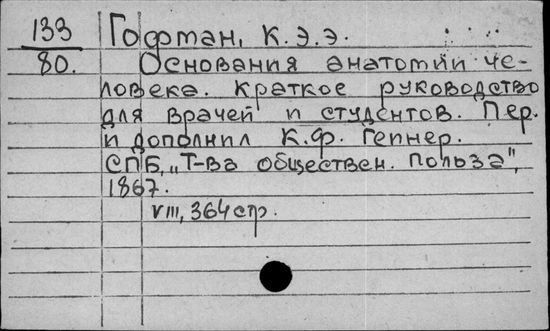 133 Гофман, К.Э.Э.
80. Основания анатомии че-
ловека. Краткое руководство
для врачей и студентов. Пер.
и дополнил К.Ф. Гепнер.
СПБ, „Т-ва обществен. польза",
1867.
VIII, 364 стр.